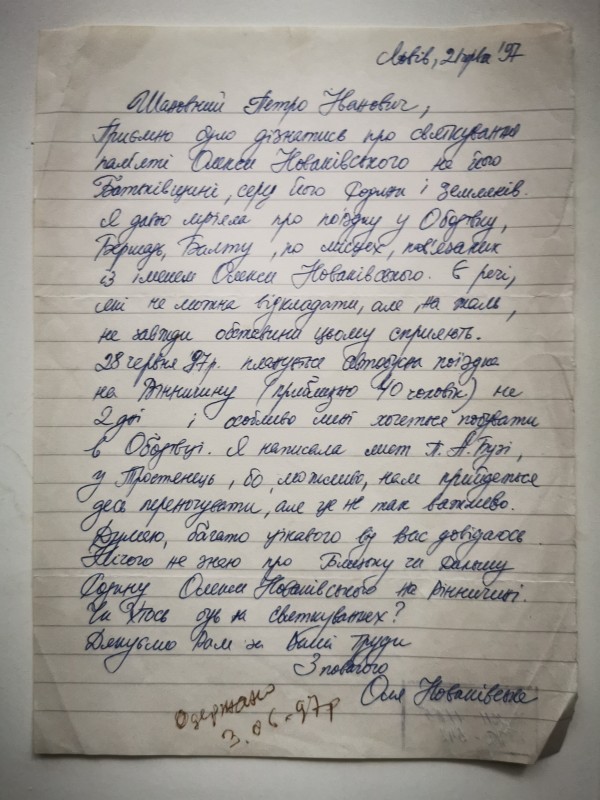 Львів, '97
Шановний Петро Іванович,
Приємно було дізнатись про святкування
пам'яті Олекси Новаківського на його
Батьківщині, серед його родини і земляків.
Я давно мріяла про поїздку у Ободівку,
Бершадь, Балту, по місцях, пов'язаних
із іменем Олекси Новаківського. Є речі,
які не можна відкладати, але, на жаль,
не завжди обставини цьому сприяють.
28 червня 97р. планується автобусна поїздка
на Вінничину (приблизно 40 чоловік) на
2 дні і особливо мені хочеться побувати
в Ободівці. Я написала лист п. А.
у Тростенець, бо, можливо, нам прийдеться
десь переночувати, але це не так важливо.
Думаю, багато цікавого від Вас довідаюсь
Нічого не знаю про близьку чи дальшу
родину Олекси Новаківського на Вінничині.
Чи хтось був на святкуваннях?
Дякуємо Вам за Ваші труди
З повагою
Оля Новаківська
одержано
3.06.97р